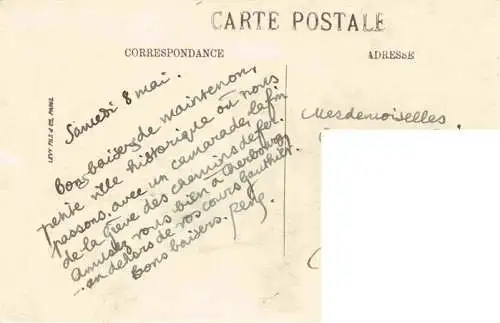 CARTE POSTALE
CORRESPONDANCE
ADRESSE
LEVY FILS & Cie, PARIS
Samedi 8 mai.
Bons baisers de maintenon,
petite ville historique où nous
passons, avec un camarade, la fin
de la Grève des chemins de fer.
Amusez vous bien à Cherbourg
en dehors de vos cours Gauthier.
Bons baisers.
Mesdemoiselles